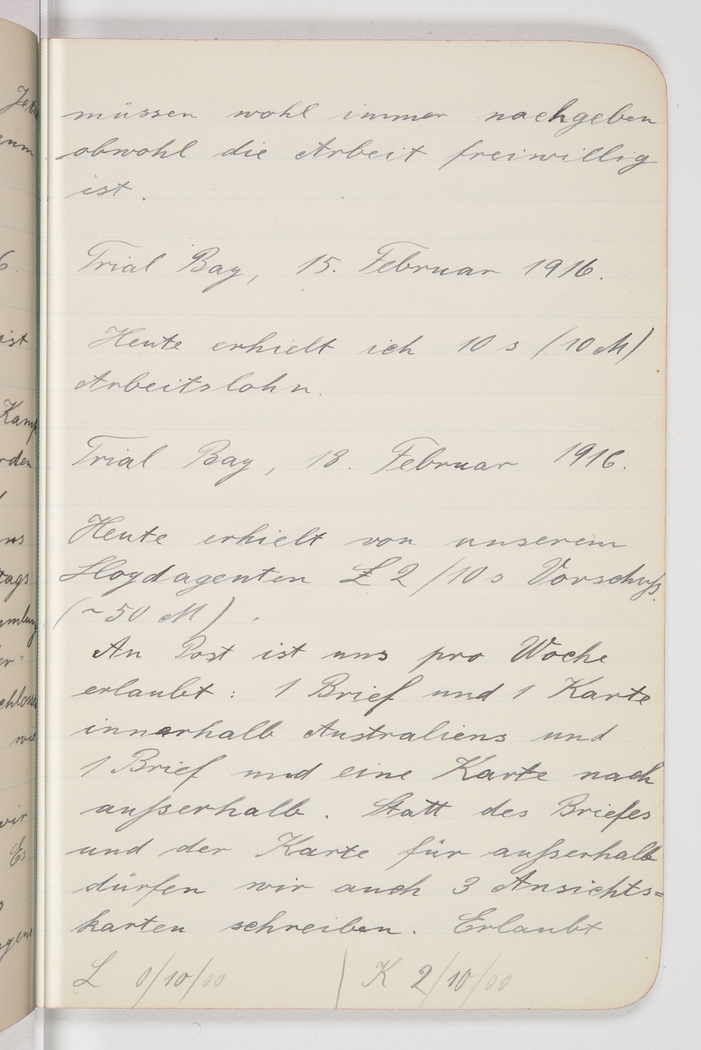 müssen wohl immer nachgeben
obwohl die Arbeit freiwillig
ist.
Trial Bay, 15. Februar 1916.
Heute erhielt ich 10 s (10 M)
Arbeitslohn.
Trial Bay, 18. Februar 1916.
Heute erhielt von unserem
Lloydagenten £ 2/10 s Vorschuß
(~50 M).
An Post ist uns pro Woche
erlaubt: 1 Brief und 1 Karte
innerhalb Australiens und
1 Brief und eine Karte nach
außerhalb. Statt des Briefes
und der Karte für außerhalb
dürfen wir auch 3 Ansichts=
karten schreiben. Erlaubt
L 0/10/00 | K 2/10/00